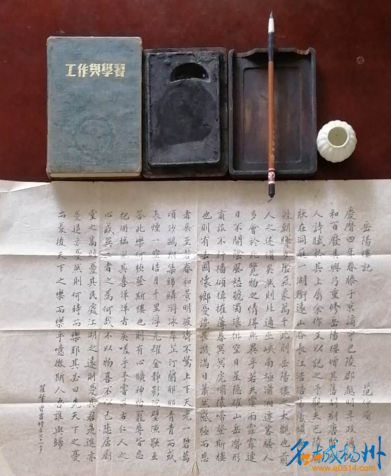 工作與學習
岳陽樓記 范
慶曆四年春滕子京謫守巴陵郡越明年政通人
和百廢具興乃重修岳陽樓增其舊制刻唐賢今
人詩賦於其上屬余作文以記之予觀夫巴陵勝
狀在洞庭一湖銜遠山吞長江浩浩湯湯橫無際
涯朝暉夕陰氣象萬千此則岳陽樓之大觀也前
人之述備矣然則北通巫峽南極瀟湘遷客騷人
多會於此覽物之情得無異乎若夫霪雨霏霏連
月不開陰風怒號濁浪排空日星隱曜山岳潛形
商旅不行檣傾楫摧薄暮冥冥虎嘯猿啼登斯樓
也則有去國懷鄉憂讒畏譏滿目蕭然感極而悲
者矣至若春和景明波瀾不驚上下天光一碧萬
頃沙鷗翔集錦鱗游泳岸芷汀蘭郁郁青青而或
長煙一空皓月千里浮光躍金靜影沉璧漁歌互
答此樂何極登斯樓也則有心曠神怡寵辱皆忘
把酒臨風其喜洋洋者矣嗟夫予嘗求古仁人之
心或異二者之為何哉不以物喜不以己悲居廟
堂之高則憂其民處江湖之遠則憂其君是進亦
憂退亦憂然則何時而樂耶其必曰先天下之憂
而憂後天下之樂而樂乎噫微斯人吾誰與歸
名城扬州